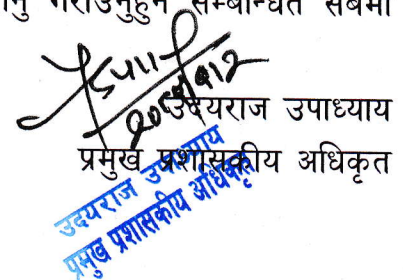 गराउनुहुन सम्बन्धित सबैमा
उदयराज उपाध्याय
प्रमुख प्रशासकीय अधिकृत
उदयराज उपाध्याय
प्रमुख प्रशासकीय अधिकृत